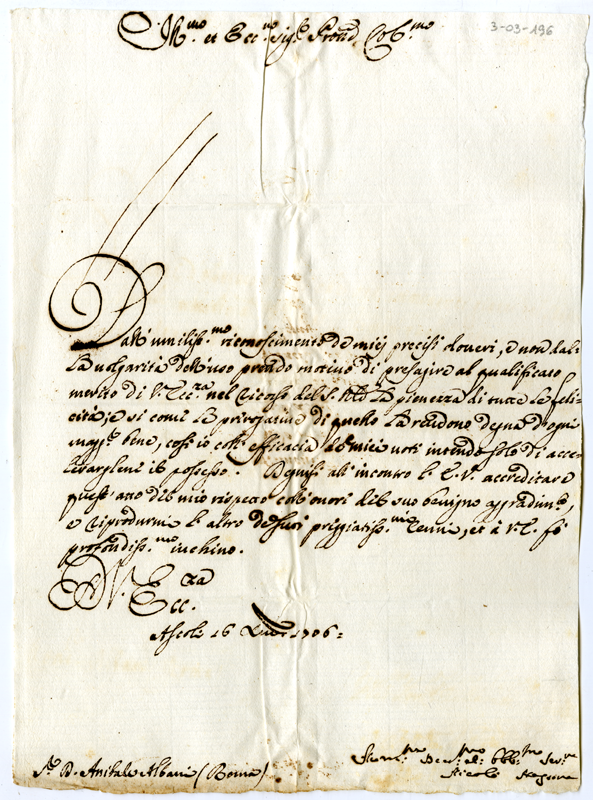 Ill.mo et Ecc.mo Sig.r Pron. Col.mo
3-03-196
Dall'umiliss.mo riconoscimento de miei precisi doveri, e non dal-
la volgarità dell'uso prendo motivo di presagire al qualificato
merito di V. Ecc.za nel ricorso del S. Nle la pienezza di tutte le feli-
cità, e si come le prerogative di quello la rendono degna d'ogni
magg.r bene, così io coll'efficacia de miei voti intendo solo di acce-
lerargliene il possesso. Degnisi all'incontro l'E.V. accreditare
quest'atto del mio rispetto coll'onori del suo benigno gradim.to,
e riprodurmi l'altro de suoi pregiatiss.mi cenni, et à V.E. fò
profondiss.mo inchino.
D. V. Ecc.za
Ascoli 16 1706
S.r D. Anibale Albani (Roma)
Um.mo Dev.mo et Obb.mo Ser.re
Nicolò